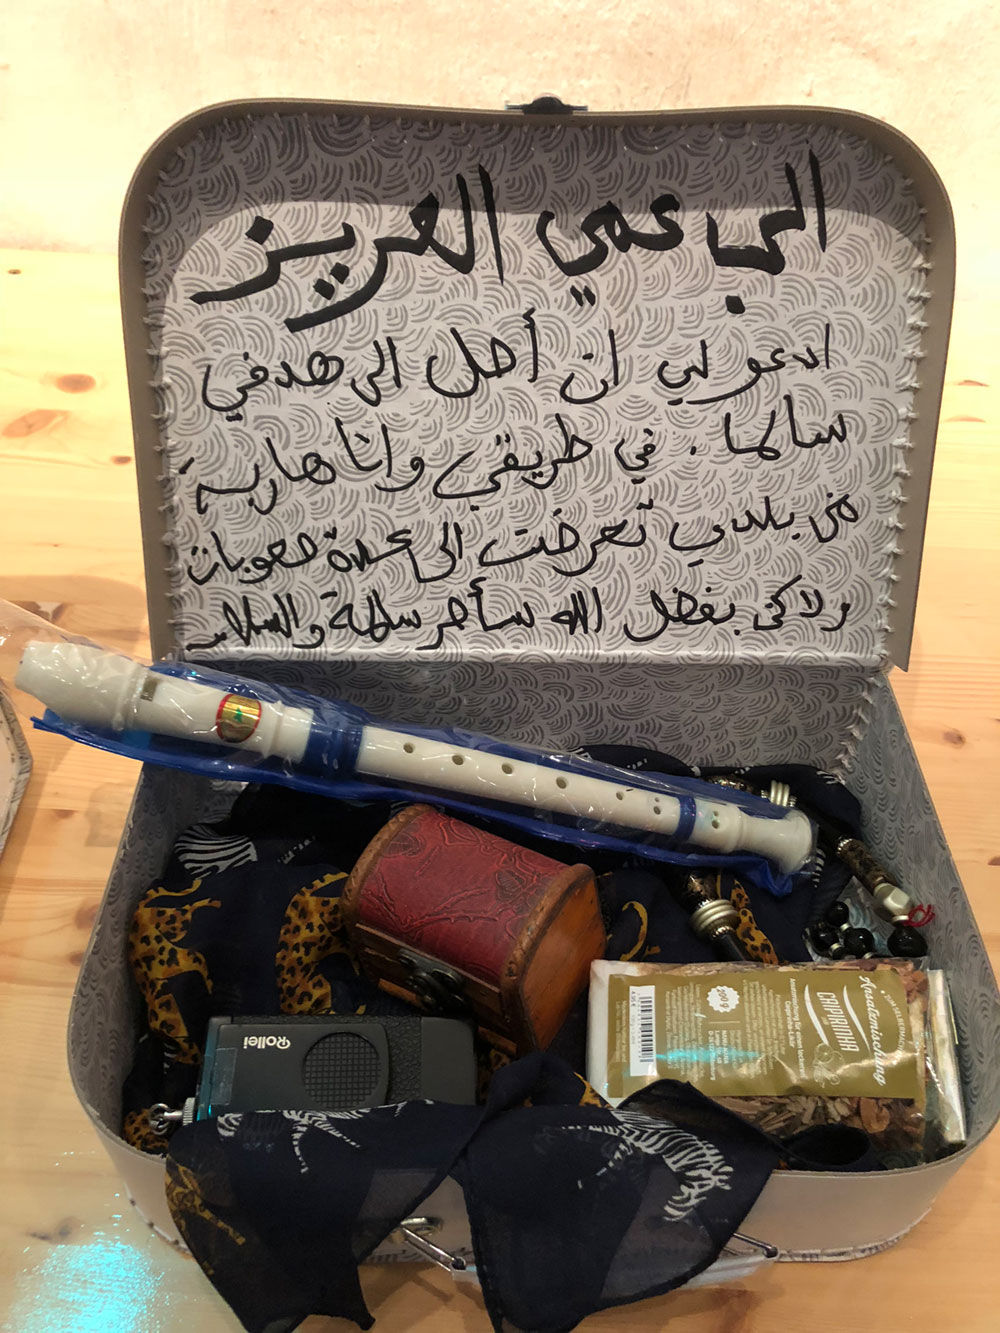 الى عمي العزيز
ادعو لي ان أصل الى هدفي
سالما . في طريقي وانا هاربة
من بلدي تعرضت الى عدة صعوبات
ولاكن بفضل الله سأمر سالمة والسلام
Rollei
Ansatzmischung
CAIPIRINHA
200 g